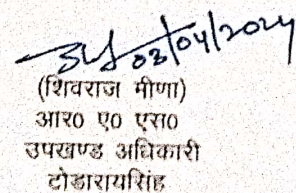 03/04/2024
(शिवराज मीणा)
आर0 ए0 एस0
उपखण्ड अधिकारी
टोडारायसिंह